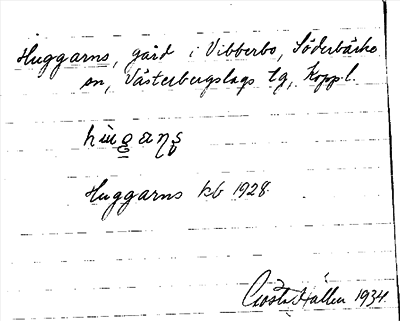 Huggarns, gård i Vibberbo, Söderbärke
sn, Västerbergslags tg, Koppl.
Huggarns kb 1928.
Gösta Hallén 1934.